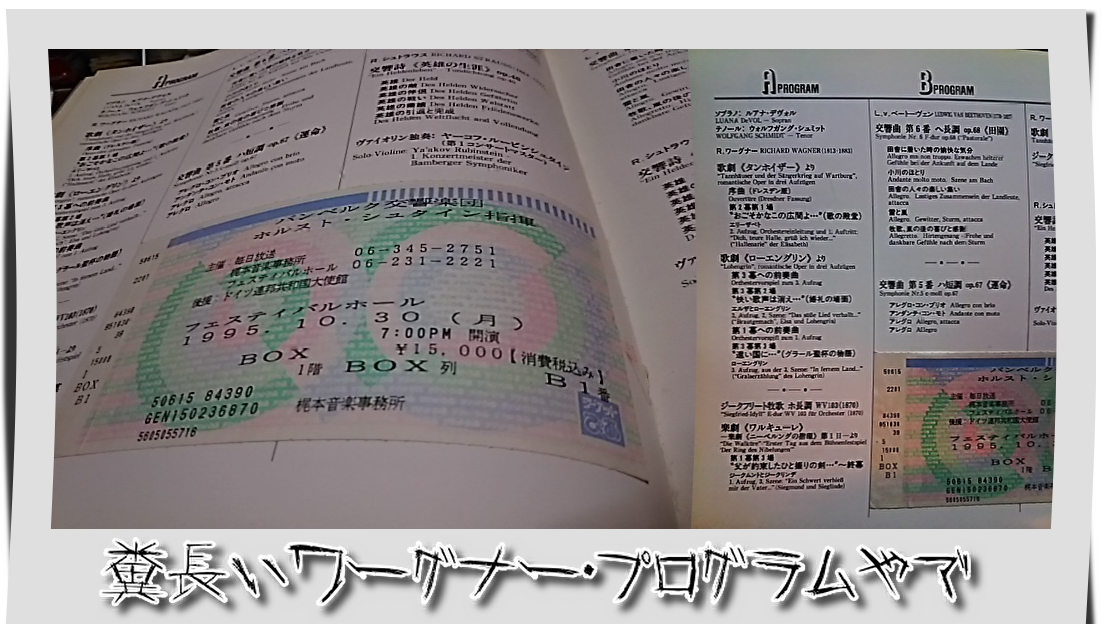 A PROGRAM
R. シュトラウス RICHARD
交響詩《英雄の生涯》op.40
英雄 Der Held
英雄の敵 Des Helden Widersacher
英雄の伴侶 Des Helden Gefährtin
英雄の戦い Des Helden Walstatt
英雄の業績 Des Helden Friedenswerke
英雄の引退と完成
Des Helden Weltflucht und Vollendung
ヴァイオリン独奏:ヤーコフ・ルービンシュタイン
(第1コンサートマスター)
Solo-Violine: Ya'akov Rubinstein
1. Konzertmeister der
Bamberger Symphoniker
op.67《運命》
Allegro con brio
Andante con moto
Allegro, attacca
バンベルク交響楽団
ホルスト・シュタイン指揮
主催:毎日放送
梶本音楽事務所 06-345-2751
フェスティバルホール 06-231-2221
後援:ドイツ連邦共和国大使館
フェスティバルホール
1995.10.30(月)
7:00PM 開演
¥15,000【消費税込み】
BOX
1階 BOX 列 B1番
50615 84390
GEN150236870 梶本音楽事務所
5605055716
A PROGRAM
ソプラノ:ルアナ・デヴォル
LUANA DeVOL — Sopran
テノール:ウォルフガング・シュミット
WOLFGANG SCHMIDT — Tenor
R. ワーグナー RICHARD WAGNER(1813-1883)
歌劇《タンホイザー》より
"Tannhäuser und der Sängerkrieg auf Wartburg",
romantische Oper in drei Aufzügen
序曲(ドレスデン版)
Ouvertüre (Dresdner Fassung)
第2幕第1場
"おごそかなこの広間よ…"(歌の殿堂)
エリーザベト
2. Aufzug, Orchestereinleitung und 1. Auftritt:
"Dich, teure Halle, grüß ich wieder..."
("Hallenarie" der Elisabeth)
歌劇《ローエングリン》より
"Lohengrin", romantische Oper in drei Aufzügen
第3幕への前奏曲
Orchestervorspiel zum 3. Aufzug
第3幕第2場
"快い歌声は消え…"(婚礼の場面)
エルザとローエングリン
3. Aufzug, 2. Szene: "Das süße Lied verhallt..."
("Brautgemach", Elsa und Lohengrin)
第1幕への前奏曲
Orchestervorspiel zum 1. Aufzug
第3幕第3場
"遠い国に…"(グラール聖杯の物語)
ローエングリン
3. Aufzug, aus der 3. Szene: "In fernem Land..."
("Gralserzählung" des Lohengrin)
ジークフリート牧歌 ホ長調 WV103(1870)
"Siegfried-Idyll" E-dur WV 103 für Orchester (1870)
楽劇《ワルキューレ》
—楽劇《ニーベルングの指環》第1日—より
"Die Walküre" "Erster Tag aus dem Bühnenfestspiel
"Der Ring des Nibelungen"
第1幕第3場
"父が約束したひと振りの剣…"~終幕
ジークムントとジークリンデ
1. Aufzug, 3. Szene: "Ein Schwert verhieß
mir der Vater..." (Siegmund und Sieglinde)
B PROGRAM
L. v. ベートーヴェン LUDWIG VAN BEETHOVEN
交響曲 第6番 ヘ長調 op.68《田園》
Symphonie Nr.6 F-dur op.68 ("Pastorale")
田舎に着いた時の愉快な気分
Allegro ma non troppo. Erwachen heiterer
Gefühle bei der Ankunft auf dem Lande
小川のほとり
Andante molto moto. Szene am Bach
田舎の人々の楽しい集い
Allegro. Lustiges Zusammensein der Landleute,
attacca
雷と嵐
Allegro. Gewitter, Sturm, attacca
牧歌、嵐の後の喜びと感謝
Allegretto. Hirtengesang - Frohe und
dankbare Gefühle nach dem Sturm
交響曲 第5番 ハ短調 op.67《運命》
Symphonie Nr.5 c-moll op.67
アレグロ・コン・ブリオ Allegro con brio
アンダンテ・コン・モト Andante con moto
アレグロ Allegro, attacca
アレグロ Allegro
50615
2201
84390
BOX
B1
主催:毎日放送
1995.10.
50615 84390
GEN150236870
5605055716
糞長いワーグナー・プログラムやで